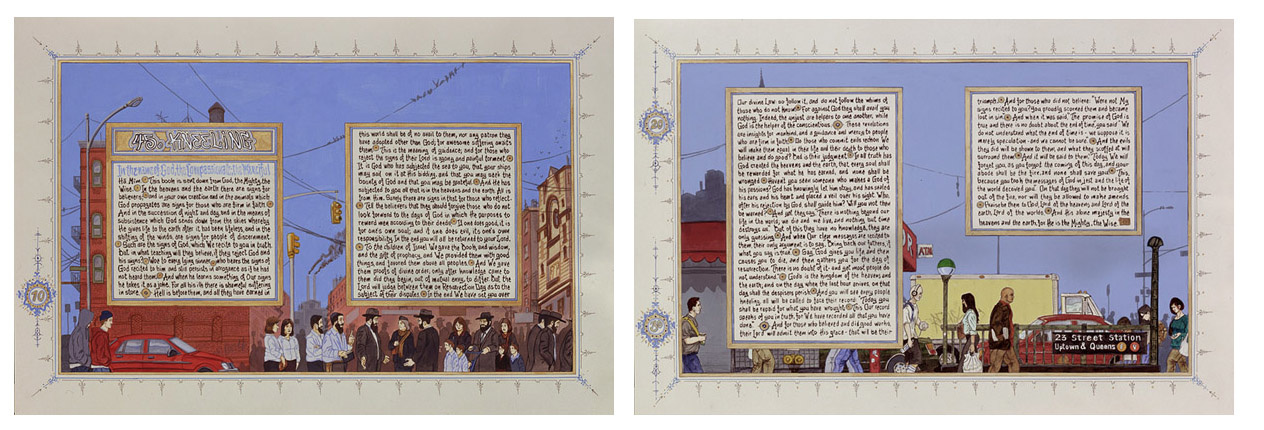 45. KNEELING
In the name of God, the Compassionate, the Merciful
Ha Mim. This book is sent down from God, the Mighty, the
Wise. In the heavens and the earth there are signs for
believers; and in your own creation and in the animals which
God propagates are signs for those who are firm in faith.
And in the succession of night and day, and in the means of
subsistence which God sends down from the skies whereby
He gives life to the earth after it had been lifeless, and in the
shifting of the winds, are signs for people of discernment.
Such are the signs of God, which We recite to you in truth,
but in what teaching will they believe, if they reject God and
his signs? Woe to every lying sinner who hears the signs of
God recited to him and still persists in arrogance as if he has
not heard them! And when he learns something of Our signs
he takes it as a joke. For all his ilk there is shameful suffering
in store. Hell is before them, and all they have earned in
this world shall be of no avail to them, nor any patron they
have adopted other than God; for awesome suffering awaits
them. This is the meaning of guidance; and for those who
reject the signs of their Lord is agony and painful torment.
It is God who has subjected the sea to you, that your ships
may sail on it at His bidding, and that you may seek the
bounty of God and that you may be grateful. And He has
subjected to you all that is in the heavens and the earth. All is
from Him. Surely there are signs in that for those who reflect.
Tell the believers that they should forgive those who do not
look forward to the days of God in which He purposes to
reward men according to their deeds. If one does good, it is
for one's own soul; and if one does evil, it's one's own
responsibility. In the end you will all be returned to your Lord.
To the children of Israel We gave the Book, and wisdom,
and the gift of prophecy, and We provided them with good
things, and favored them above all peoples. And We gave
them proofs of divine order; only after knowledge came to
them did they begin, out of mutual envy, to differ. But the
Lord will judge between them on Resurrection Day as to the
subject of their disputes. In the end We have set you over
10
Our divine Law: so follow it, and do not follow the whims of
those who do not know. For against God they shall avail you
nothing. Indeed, the unjust are helpers to one another, while
God is the helper of the conscientious. These revelations
are insights for mankind, and a guidance and mercy to people
who are firm in faith. Do those who commit evils reckon We
will make them equal in their life and their death to those who
believe and do good? Bad is their judgment. In all truth has
God created the heavens and the earth, that every soul shall
be rewarded for what he has earned, and none shall be
wronged. Haven't you seen someone who makes a God of
his passions? God has knowingly let him stray, and has sealed
his ears and his heart and placed a veil over his sight. Who,
after his rejection by God, shall guide him? Will you not then
be warned? And yet they say, "There is nothing beyond our
life in the world; we die and we live, and nothing but time
destroys us." But of this they have no knowledge, they are
only guessing. And when Our clear messages are recited to
them, their only argument is to say, "Bring back our fathers, if
what you say is true." Say, "God gives you life and then
causes you to die, and then gathers you for the day of
resurrection. There is no doubt of it - and yet most people do
not understand." God's is the kingdom of the heavens and
the earth, and on the day when the last hour arrives, on that
day shall the despisers perish. And you will see every people
kneeling; all will be called to face their record. "Today you
shall be repaid for what you have wrought. This Our record
speaks of you in truth, for We have recorded all that you have
done." And for those who believed and did good works,
their Lord will admit them into His grace - that will be their
triumph. And for those who did not believe: "Were not My
signs recited to you? you proudly scorned them and became
lost in sin. And when it was said, 'The promise of God is
true and there is no doubt about the end of time,' you said, 'We
do not understand what the end of time is - we suppose it is
merely speculation - and we cannot be sure.'" And the evils
they did will be shown to them, and what they scoffed at will
surround them. And it will be said to them: "Today, We will
forget you, as you forgot the coming of this day, and your
abode shall be the fire, and none shall save you. This,
because you took the messages of God in jest and the life of
the world deceived you." On that day they will not be brought
out of the fire, nor will they be allowed to make amends.
Praise then to God, Lord of the heavens and Lord of the
earth, Lord of the worlds. And His alone majesty in the
heavens and the earth, for He is the Mighty, the Wise.
ATM
23 Street Station
Uptown & Queens